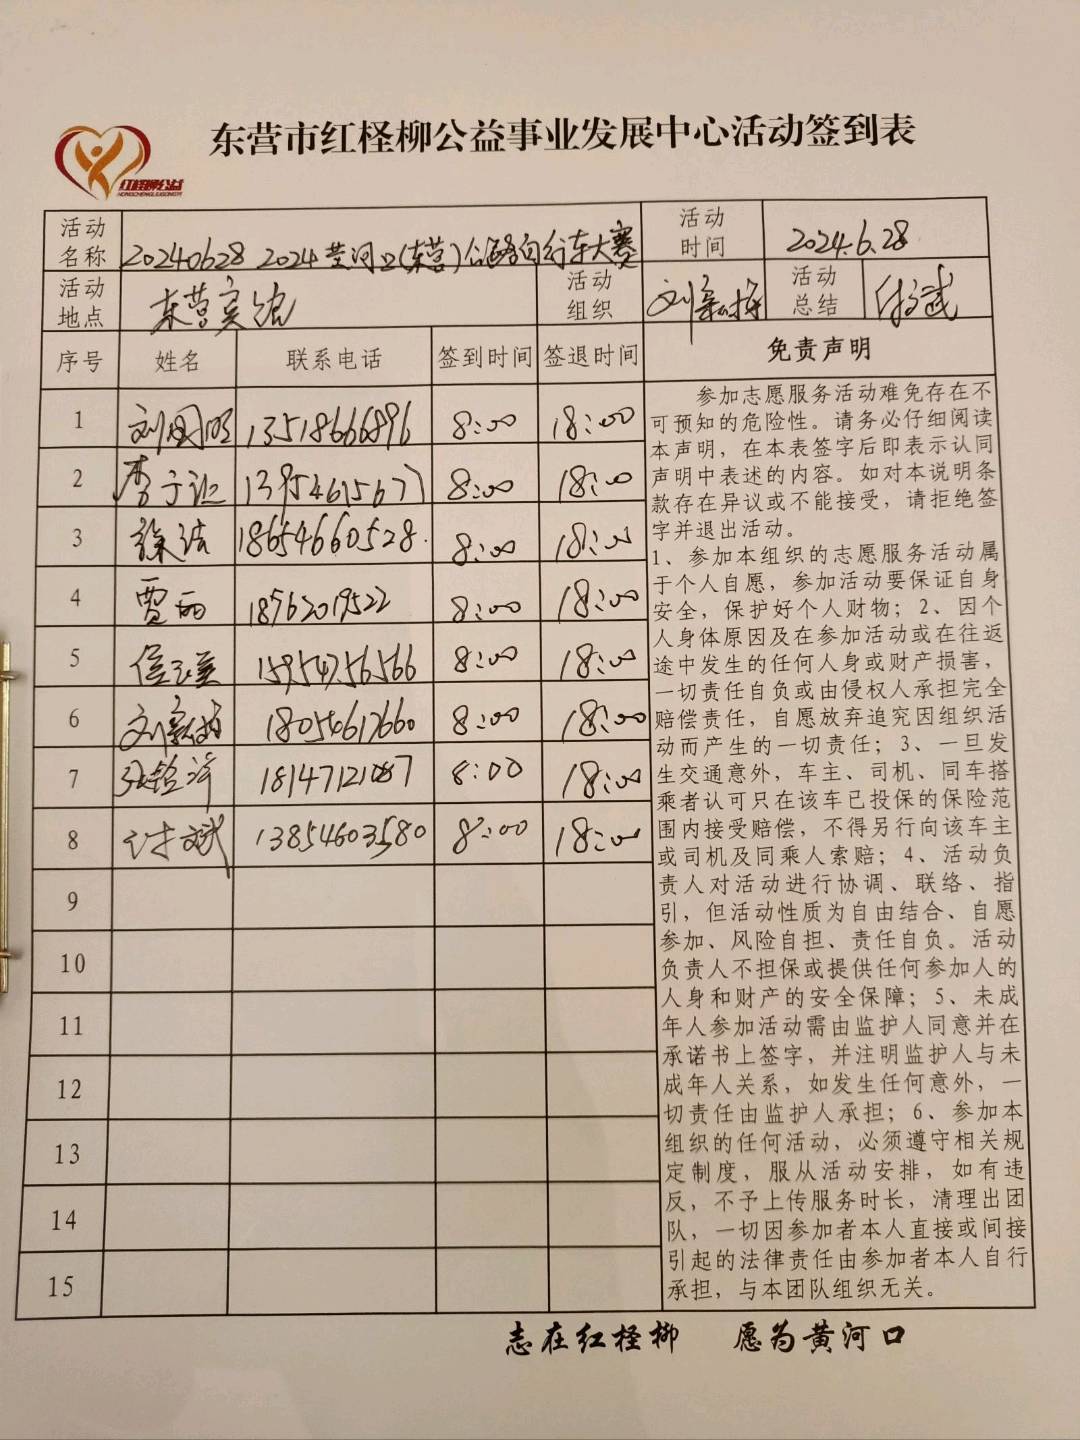 东营市红柽柳公益事业发展中心活动签到表
红柽柳公益
活动名称 20240628 2024黄河口(东营)公路自行车大赛 活动时间 2024.6.28
活动地点 东营宾馆 活动组织 刘 活动总结
序号 姓名 联系电话 签到时间 签退时间 免责声明
1 刘国明 13518666896 8:00 18:00
2 李子让 13954615677 8:00 18:00
3 徐洁 18654660528 8:00 18:00
4 贾丽 18762019522 8:00 18:00
5 15954756566 8:00 18:00
6 刘 18054617660 8:00 18:00
7 张 18147121087 8:00 18:00
8 斌 13854603580 8:00 18:00
9
10
11
12
13
14
15
参加志愿服务活动难免存在不
可预知的危险性。请务必仔细阅读
本声明，在本表签字后即表示认同
声明中表述的内容。如对本说明条
款存在异议或不能接受，请拒绝签
字并退出活动。
1、参加本组织的志愿服务活动属
于个人自愿，参加活动要保证自身
安全，保护好个人财物；2、因个
人身体原因及在参加活动或在往返
途中发生的任何人身或财产损害，
一切责任自负或由侵权人承担完全
赔偿责任，自愿放弃追究因组织活
动而产生的一切责任；3、一旦发
生交通意外，车主、司机、同车搭
乘者认可只在该车已投保的保险范
围内接受赔偿，不得另行向该车主
或司机及同乘人索赔；4、活动负
责人对活动进行协调、联络、指
引，但活动性质为自由结合、自愿
参加、风险自担、责任自负。活动
负责人不担保或提供任何参加人的
人身和财产的安全保障；5、未成
年人参加活动需由监护人同意并在
承诺书上签字，并注明监护人与未
成年人关系，如发生任何意外，一
切责任由监护人承担；6、参加本
组织的任何活动，必须遵守相关规
定制度，服从活动安排，如有违
反，不予上传服务时长，清理出团
队，一切因参加者本人直接或间接
引起的法律责任由参加者本人自行
承担，与本团队组织无关。
志在红柽柳 愿为黄河口